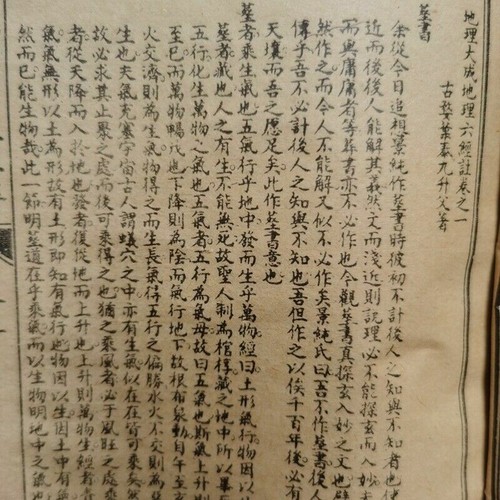 地理大成地理六經註卷之一
古婺葉泰九升父著
葬書
余從今日追想景純作葬書時彼初不計後人之知與不知者也使
近而後後人能解其義然文而淺近則説理必不能探玄而入妙
而與庸庸者等葬書亦不必作也今觀葬書真探玄入妙之文也
然作之而今人不能解又似不必作矣景純氏曰吾不作葬書後
傳乎吾不必計後人之知與不知也吾但作之以俟千百年後必有
天壤而吾之愿足矣此作葬書意也
葬者乘生氣也五氣行乎地中發而生乎萬物經曰土形氣行物因以
葬者藏也人之有生不能無死故聖人制為棺槨藏之地中所以
五行化生萬物之氣也五氣者五行為氣母故曰五氣也斯氣上升則
至巳而萬物暢茂也下降則為陰而氣行地下故根荄泉動自午至
火交濟則為生氣物得之而生長氣得五行之偏勝水火不交則為
生也夫氣充塞宇宙古人謂蟻穴之中亦有生氣似在在皆可乘矣然
故必求其止聚之處而後可乘得之也猶之乘風者必于風旺之處
者從天降而入於地也發者復從地而上升也上升則萬物生經者
氣氣無形以土為形故有土形即知有氣行也物因以生因土中有氣
然而已能生物哉此一節明葬道在乎乘氣而以生物明地中之氣